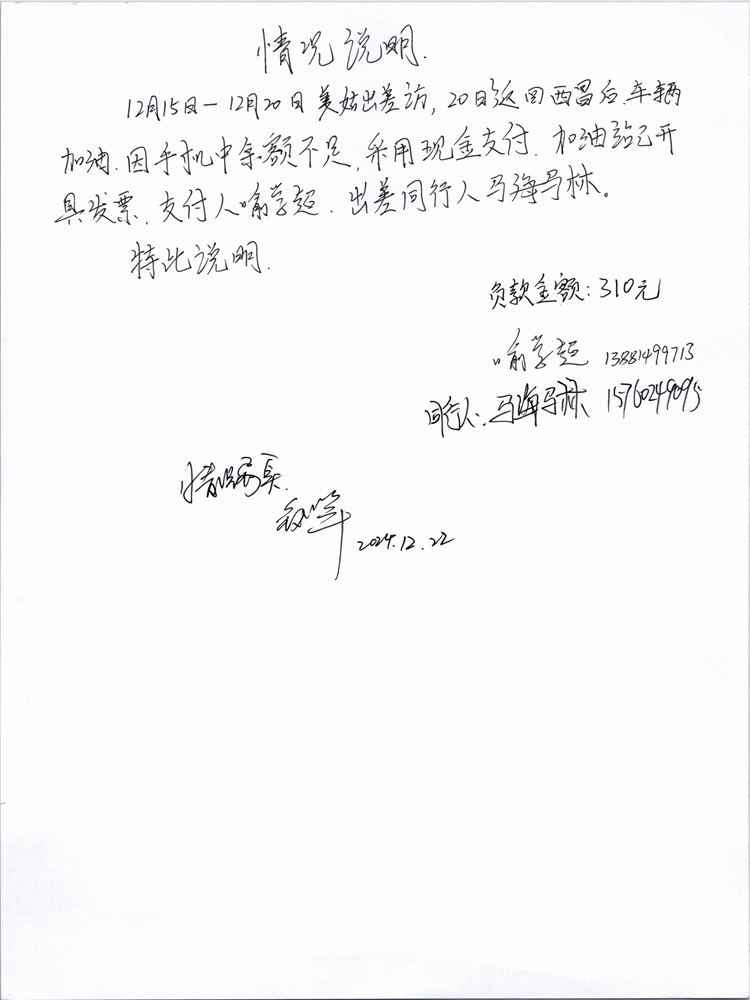 情况说明.
12月15日—12月20日美姑出差访,20日返回西昌后.车辆
加油.因手机中余额不足,采用现金支付.加油站已开
具发票.支付人喻学超.出差同行人马海马林。
特此说明.
负款金额:310元
喻学超 13881499713
同行人:马海马林 15760249095
情况属实.
2024.12.22